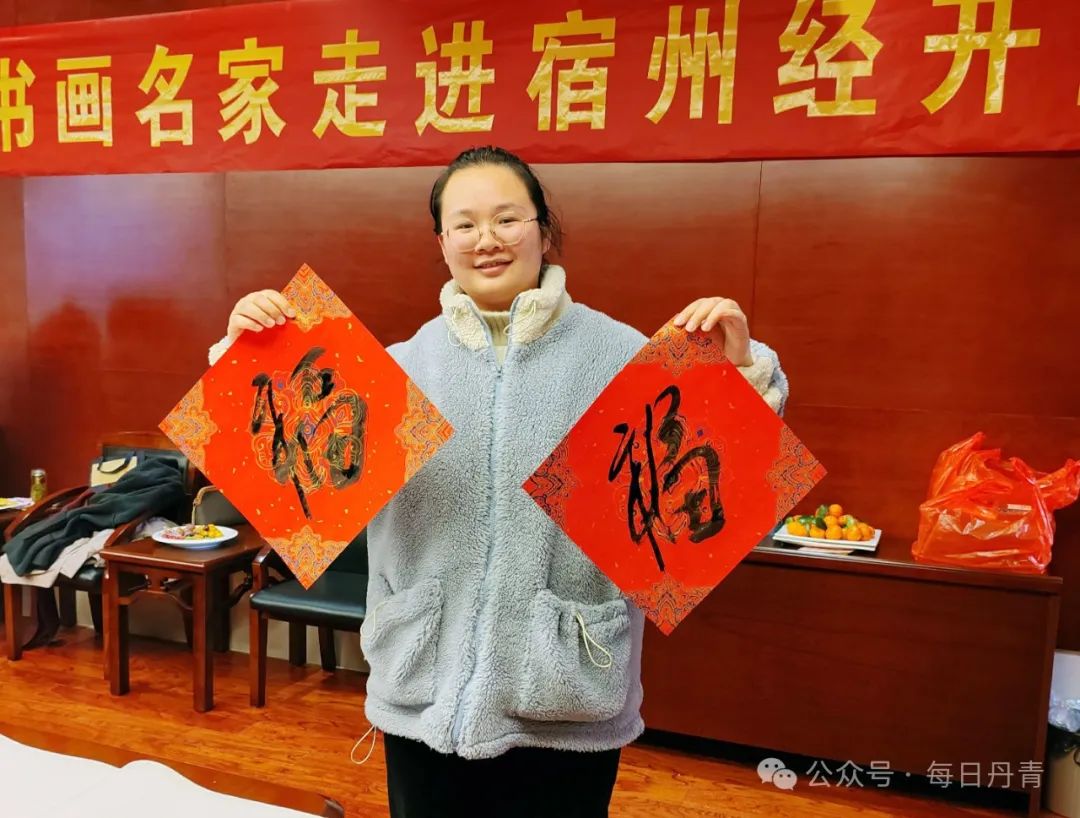 书画名家走进宿州经开
福
福
公众号·每日丹青